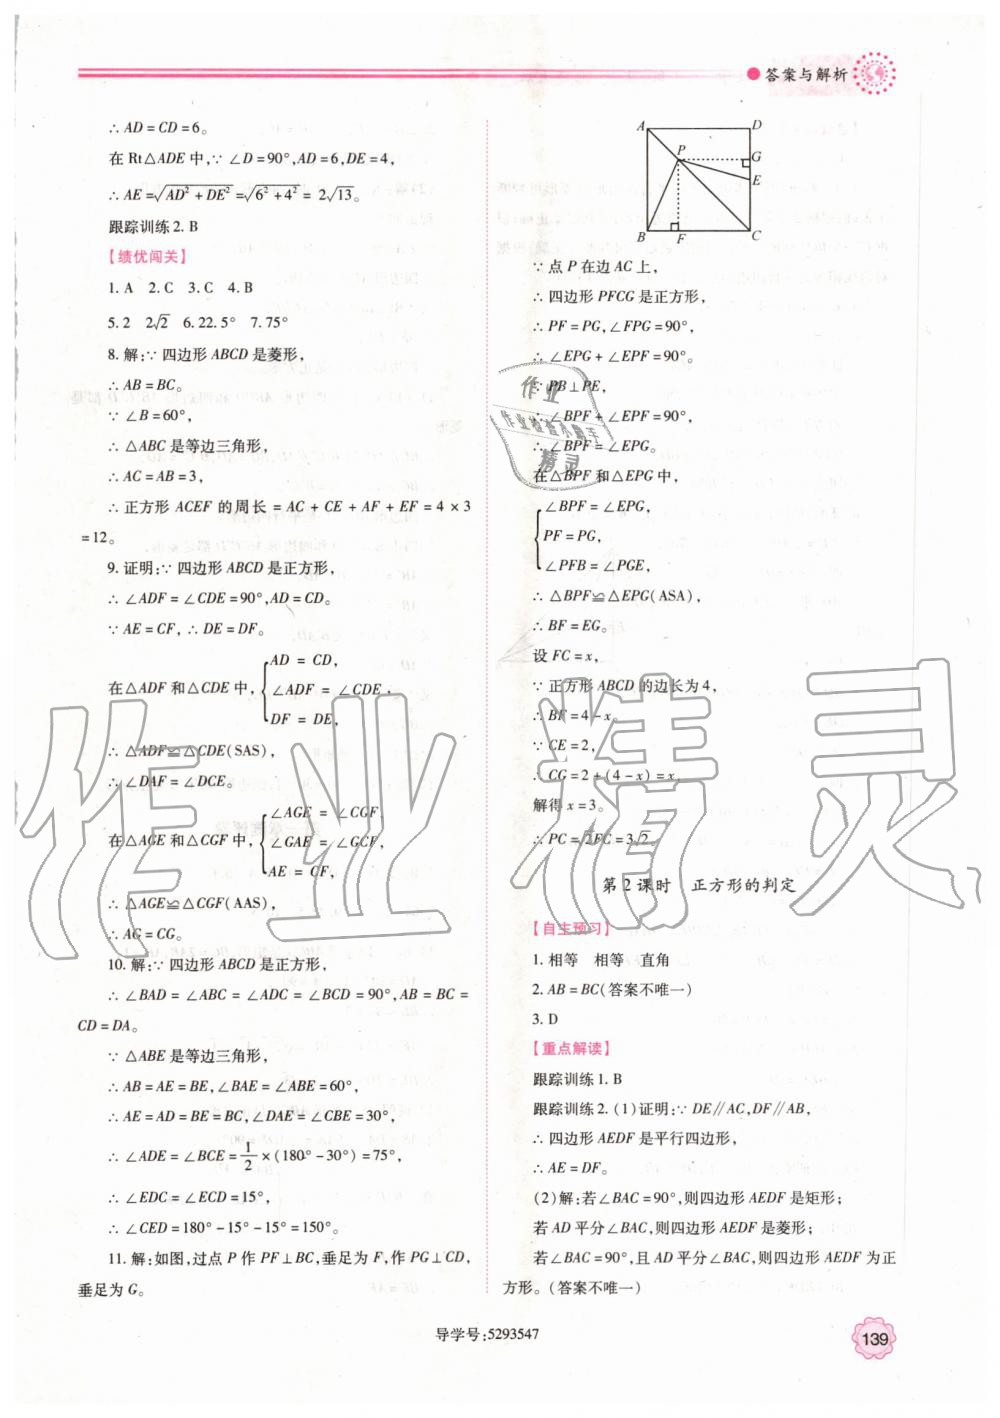 答案与解析
∴ AD=CD=6。
在 Rt△ADE 中,∵ ∠D=90°,AD=6,DE=4,
∴ AE=√(AD²+DE²)=√(6²+4²)=2√13。
跟踪训练2. B
【绩优闯关】
1. A 2. C 3. C 4. B
5. 2 2√2 6. 22.5° 7. 75°
8. 解:∵ 四边形 ABCD 是菱形,
∴ AB=BC。
∵ ∠B=60°,
∴ △ABC 是等边三角形,
∴ AC=AB=3,
∴ 正方形 ACEF 的周长=AC+CE+AF+EF=4×3
=12。
9. 证明:∵ 四边形 ABCD 是正方形,
∴ ∠ADF=∠CDE=90°,AD=CD。
∵ AE=CF,∴ DE=DF。
在△ADF 和△CDE 中,
AD=CD,
∠ADF=∠CDE,
DF=DE,
∴ △ADF≌△CDE(SAS),
∴ ∠DAF=∠DCE。
在△AGE 和△CGF 中,
∠AGE=∠CGF,
∠GAE=∠GCF,
AE=CF,
∴ △AGE≌△CGF(AAS),
∴ AG=CG。
10. 解:∵ 四边形 ABCD 是正方形,
∴ ∠BAD=∠ABC=∠ADC=∠BCD=90°,AB=BC=
CD=DA。
∵ △ABE 是等边三角形,
∴ AB=AE=BE,∠BAE=∠ABE=60°,
∴ AE=AD=BE=BC,∠DAE=∠CBE=30°,
∴ ∠ADE=∠BCE=1/2×(180°-30°)=75°,
∴ ∠EDC=∠ECD=15°,
∴ ∠CED=180°-15°-15°=150°。
11. 解:如图,过点 P 作 PF⊥BC,垂足为 F,作 PG⊥CD,
垂足为 G。
A D
P G
E
B F C
∵ 点 P 在边 AC 上,
∴ 四边形 PFCG 是正方形,
∴ PF=PG,∠FPG=90°,
∴ ∠EPG+∠EPF=90°。
∵ PB⊥PE,
∴ ∠BPF+∠EPF=90°,
∴ ∠BPF=∠EPG。
在△BPF 和△EPG 中,
∠BPF=∠EPG,
PF=PG,
∠PFB=∠PGE,
∴ △BPF≌△EPG(ASA),
∴ BF=EG。
设 FC=x,
∵ 正方形 ABCD 的边长为 4,
∴ BF=4-x。
∵ CE=2,
∴ CG=2+(4-x)=x,
解得 x=3。
∴ PC=√2FC=3√2。
第 2 课时 正方形的判定
【自主预习】
1. 相等 相等 直角
2. AB=BC(答案不唯一)
3. D
【重点解读】
跟踪训练1. B
跟踪训练2. (1)证明:∵ DE∥AC,DF∥AB,
∴ 四边形 AEDF 是平行四边形,
∴ AE=DF。
(2)解:若∠BAC=90°,则四边形 AEDF 是矩形;
若 AD 平分∠BAC,则四边形 AEDF 是菱形;
若∠BAC=90°,且 AD 平分∠BAC,则四边形 AEDF 为正
方形。(答案不唯一)
作业
作业检查小助手
精灵
作业精灵
导学号:5293547
139